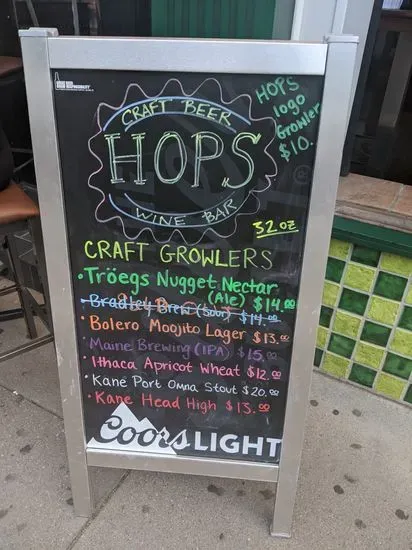 CRAFT BEER
HOPS
WINE BAR
HOPS
logo
Growler
$10.
32 oz
CRAFT GROWLERS
• Tröegs Nugget Nectar
(Ale) $14.00
• Bradley Brew (Sour) $14.00
• Bolero Moojito Lager $13.00
• Maine Brewing (IPA) $15.00
• Ithaca Apricot Wheat $12.00
• Kane Port Omna Stout $20.00
• Kane Head High $13.00
Coors LIGHT